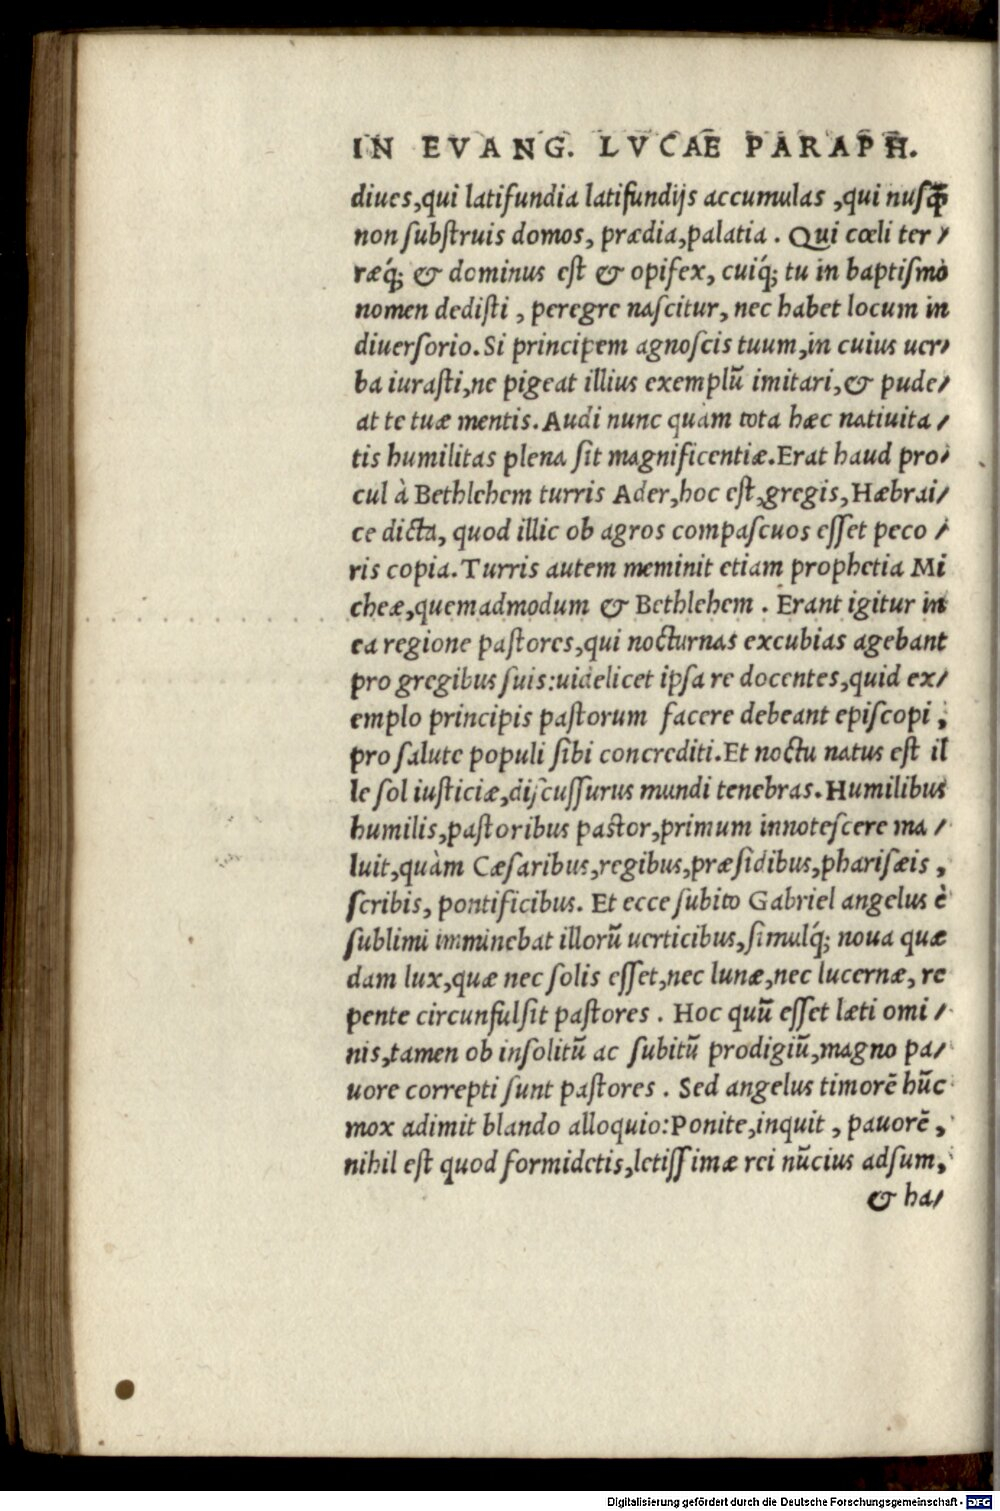 IN EVANG. LVCAE PARAPH.
diues,qui latifundia latifundijs accumulas ,qui nusq̃
non substruis domos, prædia,palatia . Qui cœli ter/
ræq́; & dominus est & opifex, cuiq́; tu in baptismo
nomen dedisti , peregre nascitur, nec habet locum in
diuersorio.Si principem agnoscis tuum,in cuius uer/
ba iurasti,ne pigeat illius exemplũ imitari,& pude/
at te tuæ mentis.Audi nunc quàm tota hæc natiuita/
tis humilitas plena sit magnificentiæ.Erat haud pro/
cul à Bethlehem turris Ader,hoc est,gregis,Hæbrai/
ce dicta, quod illic ob agros compascuos esset peco/
ris copia.Turris autem meminit etiam prophetia Mi
cheæ,quemadmodum & Bethlehem . Erant igitur in
ea regione pastores,qui nocturnas excubias agebant
pro gregibus suis:uidelicet ipsa re docentes,quid ex/
emplo principis pastorum facere debeant episcopi ,
pro salute populi sibi concrediti.Et noctu natus est il
le sol iusticiæ,discussurus mundi tenebras.Humilibus
humilis,pastoribus pastor,primum innotescere ma/
luit,quàm Cæsaribus,regibus,præsidibus,pharisæis ,
scribis, pontificibus. Et ecce subito Gabriel angelus è
sublimi imminebat illorũ uerticibus,simulq́; noua quæ
dam lux,quæ nec solis esset,nec lunæ,nec lucernæ, re
pente circunfulsit pastores . Hoc quũ esset læti omi/
nis,tamen ob insolitũ ac subitũ prodigiũ,magno pa/
uore correpti sunt pastores . Sed angelus timorẽ hũc
mox adimit blando alloquio:Ponite,inquit , pauorẽ ,
nihil est quod formidetis,letissimæ rei nũcius adsum,
& ha/
Digitalisierung gefördert durch die Deutsche Forschungsgemeinschaft - DFG